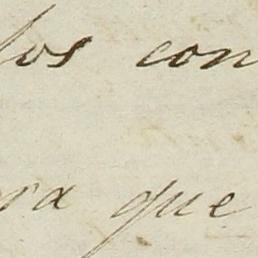 los con
ra que